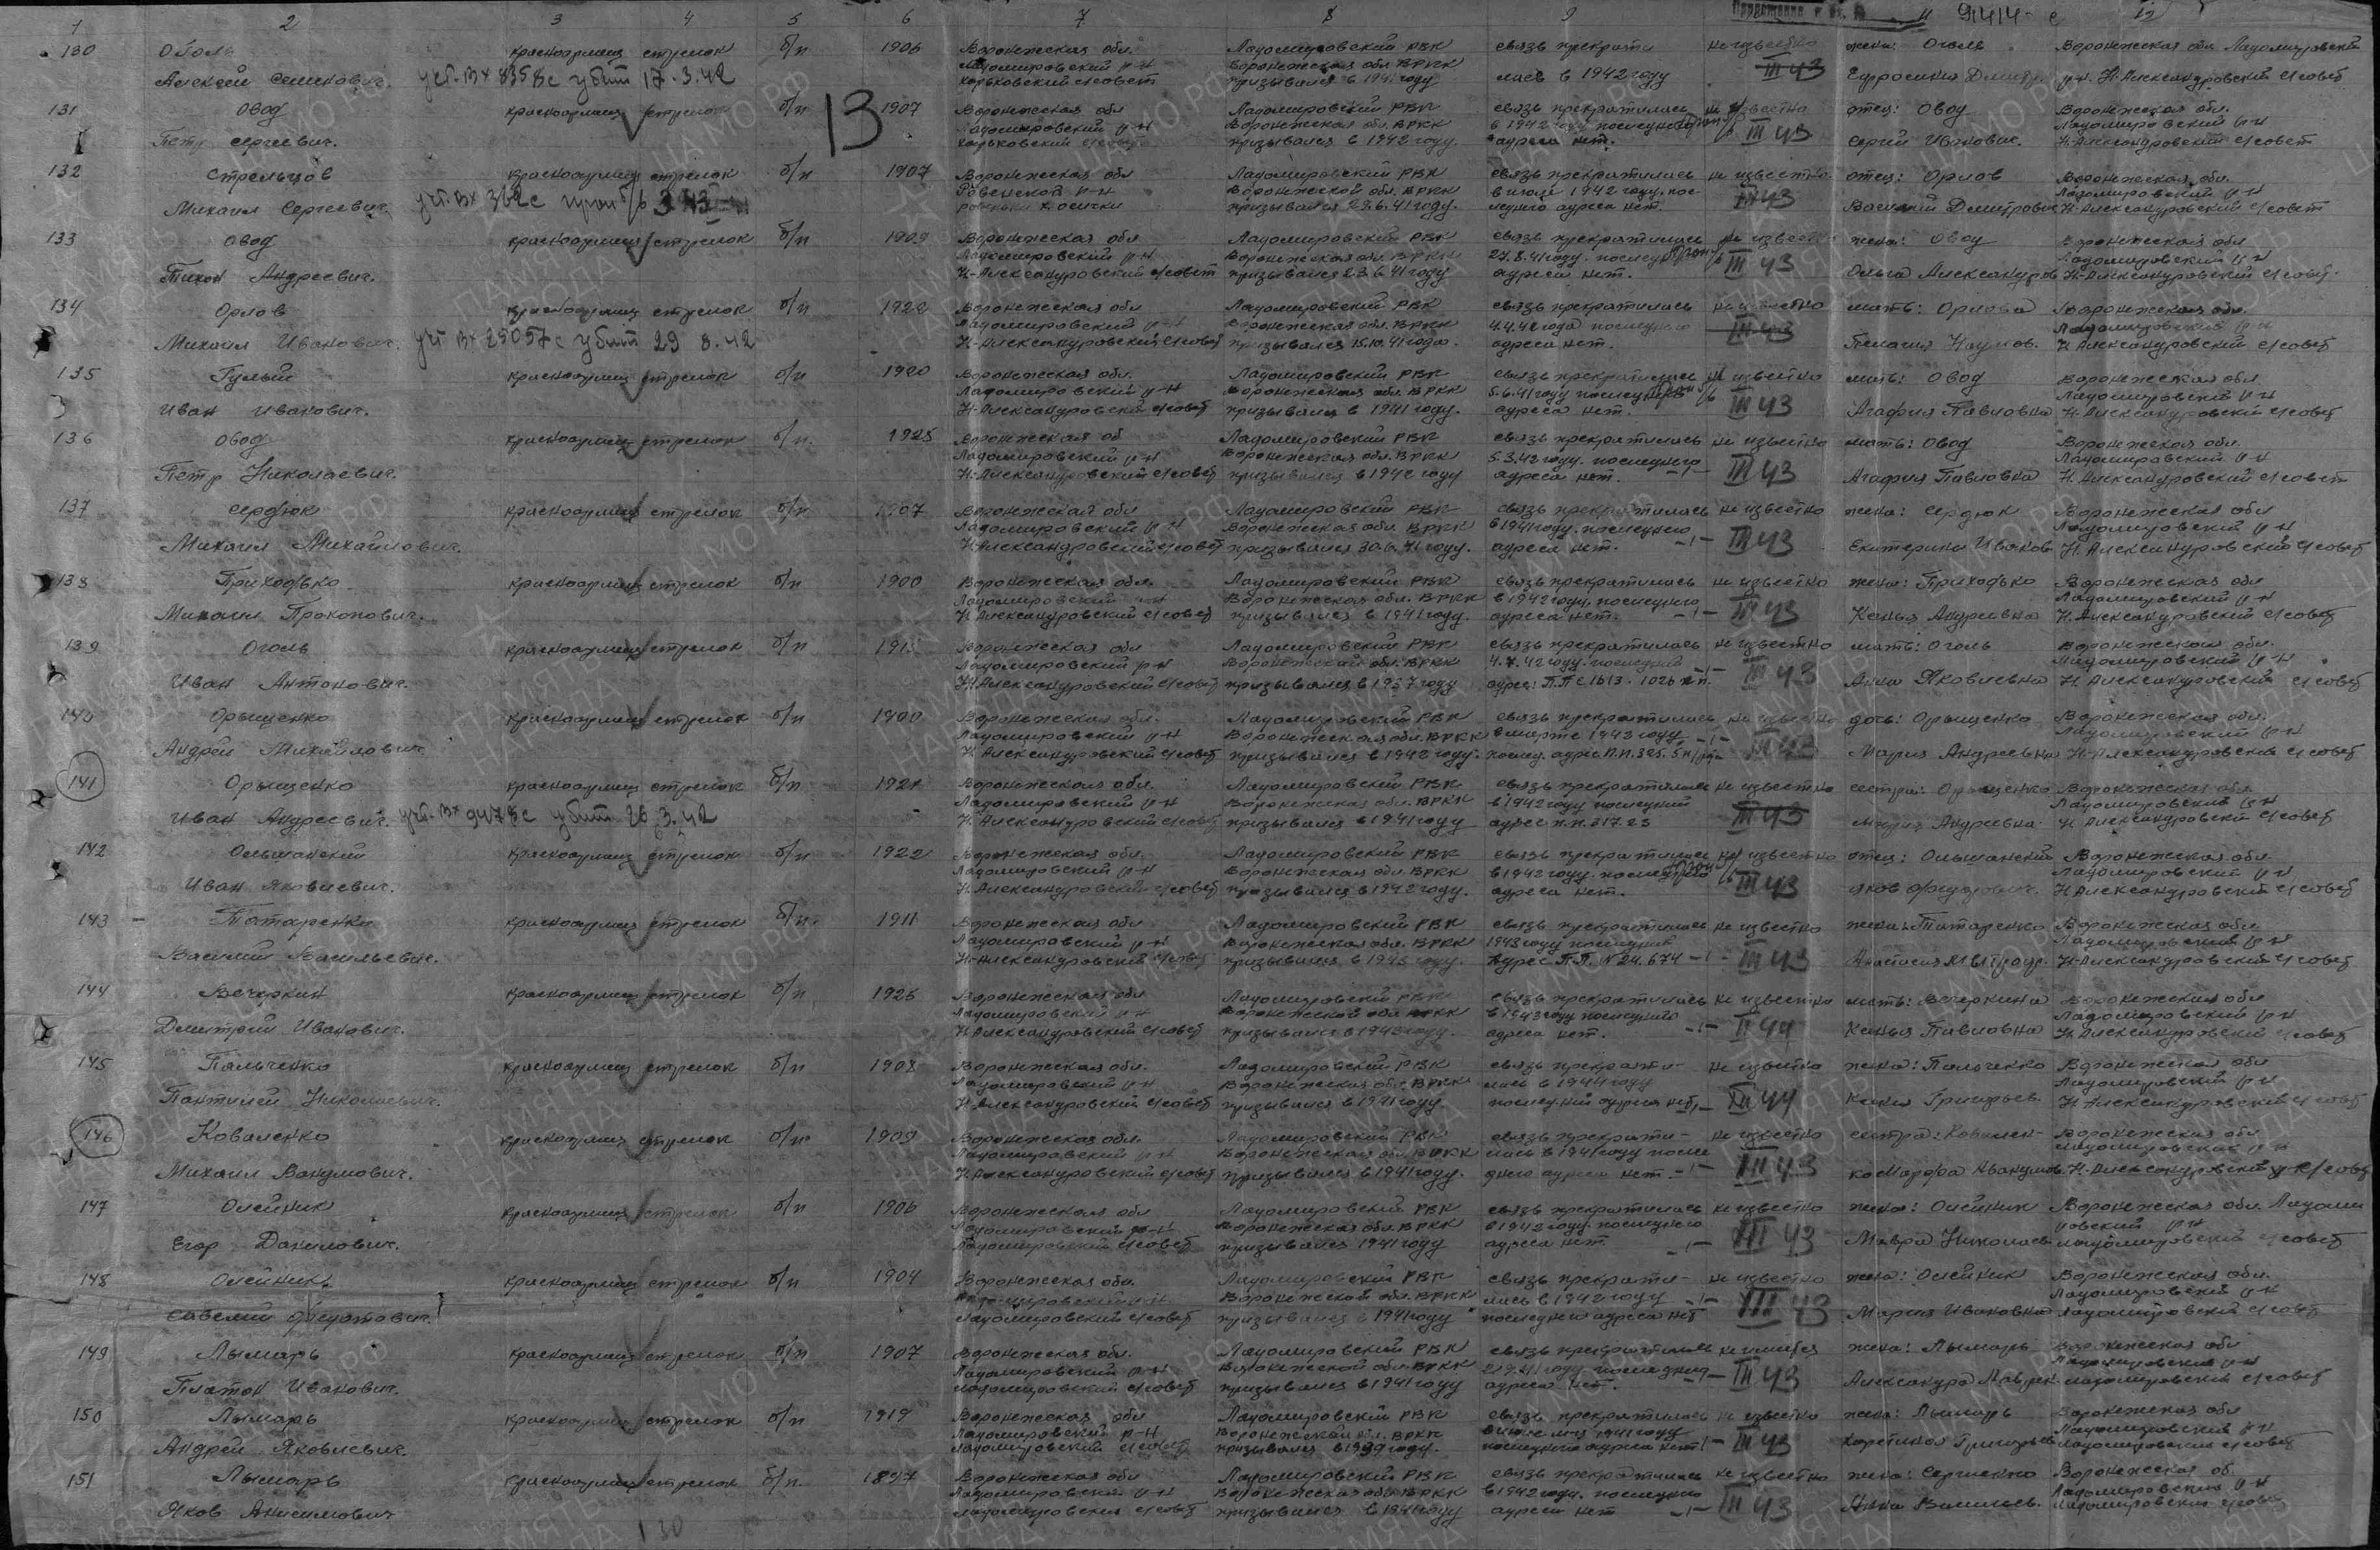 1 2 3 4 5 6 7 8 9 12
91414-с
130 Оголь красноармеец стрелок б/п 1906 Воронежская обл. Ладомировский РВК связь прекрати не известно жена: Оголь Воронежская обл. Ладомировский
Ладомировский р-н Воронежская обл. ВРКК
Алексей Семенович. уст. вх 8358с убит 17.3.42 Харьковский с/совет призывался в 1941 году лась в 1942 году III 43 Ефросиния Дмитр. р-н. Н-Александровский с/совет
131 Овод красноармеец стрелок б/п 13 1907 Воронежская обл Ладомировский РВК связь прекратилась не известно отец: Овод Воронежская обл.
Ладомировский р-н Воронежская обл. ВРКК в 1942 году последнего Ладомировский р-н
Петр Сергеевич. Харьковский с/совет призывался в 1942 году. адреса нет. III 43 Сергей Иванович. Н-Александровский с/совет
132 Стрельцов красноармеец стрелок б/п 1907 Воронежская обл Ладомировский РВК связь прекратилась не известно отец: Орлов Воронежская обл.
Ровенской р-н Воронежской обл. ВРКК в июле 1942 году. пос- Ладомировский р-н
Михаил Сергеевич. призывался 23.6.41 году. леднего адреса нет. III 43 Василий Дмитрович Н-Александровский с/совет
133 Овод красноармеец стрелок б/п 1909 Воронежская обл Ладомировский РВК связь прекратилась не известно жена: Овод Воронежская обл
Ладомировский р-н Воронежская обл. ВРКК Ладомировский р-н
Тихон Андреевич. Н-Александровский с/совет призывался 23.6.41 году адреса нет. III 43 Ольга Александров Н-Александровский с/совет.
134 Орлов красноармеец стрелок б/п 1922 Воронежская обл Ладомировский РВК связь прекратилась не известно мать: Орлова Воронежская обл.
Ладомировский р-н Воронежская обл. ВРКК 4.4.42 года последнего Ладомировский р-н
Михаил Иванович. уст вх 25057с убит 29 8.42 Н-Александровский с/совет призывался 15.10.41 года. адреса нет. III 43 Пелагия Наумов. Н Александровский с/совет
135 Гулый красноармеец стрелок б/п 1920 Воронежская обл. Ладомировский РВК связь прекратилась не известно мать: Овод Воронежская обл
Ладомировский р-н Воронежская обл. ВРКК 5.6.41 году последнего Ладомировский р-н
Иван Иванович. Н-Александровский с/совет призывался в 1941 году. адреса нет. III 43 Агафия Павловна Н-Александровский с/совет
136 Овод красноармеец стрелок б/п. 1925 Воронежская об Ладомировский РВК связь прекратилась не известно мать: Овод Воронежская обл.
Ладомировский р-н Воронежская обл. ВРКК 5.3.42 году. последнего Ладомировский р-н
Петр Николаевич. Н-Александровский с/совет призывался в 1942 году адреса нет. -"- III 43 Агафия Павловна Н. Александровский с/совет
137 Сердюк красноармеец стрелок б/п 1907 Воронежская обл Ладомировский РВК связь прекратилась не известно жена: Сердюк Воронежская обл
Ладомировский р-н Воронежская обл. ВРКК в 1941 году. последнего Ладомировский р-н
Михаил Михайлович. Н-Александровский с/совет призывался 30.6.41 году. адреса нет. -"- III 43 Екатерина Иванов Н. Александровский с/совет
138 Приходько красноармеец стрелок б/п 1900 Воронежская обл. Ладомировский РВК связь прекратилась не известно жена: Приходько Воронежская обл
Ладомировский р-н Воронежская обл. ВРКК в 1942 году. последнего Ладомировский р-н
Михаил Прокопович. Н Александровский с/совет призывался в 1941 году. адреса нет. -"- III 43 Ксенья Андреевна Н. Александровский с/совет
139 Оголь красноармеец стрелок б/п Воронежская обл Ладомировский РВК связь прекратилась не известно мать: Оголь Воронежской обл.
Ладомировский р-н Воронежской обл. ВРКК Ладомировский р-н
Иван Антонович. Н Александровский с/совет призывался в 1937 году III 43 Анна Яковлевна Н. Александровский с/совет
140 Орищенко красноармеец стрелок б/п 1900 Воронежская обл. Ладомировский РВК связь прекратилась не известно дочь: Орищенко Воронежская обл.
Ладомировский р-н Воронежская обл. ВРКК в марте 1943 году -"- Ладомировский р-н
Андрей Михайлович Н. Александровский с/совет призывался в 1942 году. III 43 Мария Андреевна Н-Александровский с/совет
141 Орищенко красноармеец стрелок б/п 1921 Воронежская обл. Ладомировский РВК связь прекратилась не известно сестра: Орищенко Воронежская обл.
Ладомировский р-н Воронежская обл. ВРКК в 1942 году последний Ладомировский р-н
Иван Андреевич. уст. вх 9478с убит 26 3.42 Н. Александровский с/совет призывался в 1941 году адрес п.п. 317.23 III 43 Мария Андреевна Н Александровский с/совет
142 Ольшанский красноармеец стрелок б/п 1922 Воронежская обл. Ладомировский РВК связь прекратилась не известно отец: Ольшанский Воронежская обл.
Ладомировский р-н Воронежская обл. ВРКК в 1942 году. последнего Ладомировский р-н
Иван Яковлевич. Н. Александровский с/совет призывался в 1942 году. адреса нет. III 43 Яков Федорович. Н Александровский с/совет
143 - Татаренко красноармеец стрелок б/п. 1911 Воронежская обл Ладомировский РВК связь прекратилась не известно жена: Татаренко Воронежская обл.
Ладомировский р-н Воронежская обл. ВРКК 1943 году последний Ладомировский р-н
Василий Васильевич. Н-Александровский с/совет призывался в 1943 году. адрес П.П. N 24.674 -"- III 43 Анастасия Н-Александровский с/совет
144 Вечеркин красноармеец стрелок б/п 1926 Воронежская обл Ладомировский РВК связь прекратилась не известно мать: Вечеркина Воронежская обл
Ладомировский р-н Воронежской обл. ВРКК в 1943 году последнего Ладомировский р-н
Дмитрий Иванович. Н Александровский с/совет призывался в 1943 году. адреса нет. -"- II 44 Ксенья Павловна Н. Александровский с/совет
145 Пальченко красноармеец стрелок б/п 1908 Воронежская обл. Ладомировский РВК связь прекрати- не известно жена: Пальченко Воронежская обл
Ладомировский р-н Воронежская обл. ВРКК лась в 1944 году Ладомировский р-н
Пантилей Николаевич. Н Александровский с/совет призывался в 1941 году. последний адреса нет. III 44 Григорьев. Н Александровский с/совет
146 Коваленко красноармеец стрелок б/п 1909 Воронежская обл. Ладомировский РВК связь прекрати- не известно сестра: Ковален- Воронежская обл
Ладомировский р-н Воронежская обл. ВРКК лась в 1941 году после Ладомировский р-н
Михаил Вакумович. Н. Александровский с/совет призывался в 1941 году. днего адреса нет. -"- III 43 ко Марфа Авакумов. Н. Александровский с/совет
147 Олейник красноармеец стрелок б/п 1906 Воронежская обл Ладомировский РВК связь прекратилась не известно жена: Олейник Воронежская обл. Ладоми
Ладомировский р-н Воронежская обл. ВРКК в 1942 году. последнего ровский р-н
Егор Данилович. Ладомировский с/совет призывался 1941 году адреса нет. -"- III 43 Мавра Николаев Ладомировский с/совет
148 Олейник красноармеец стрелок б/п 1904 Воронежская обл. Ладомировский РВК связь прекрати- не известно жена: Олейник Воронежская обл.
Ладомировский р-н Воронежской обл. ВРКК лась в 1942 году -"- Ладомировский р-н
Савелий Федотович. Ладомировский с/совет призывался в 1941 году последнего адреса нет III 43 Мария Ивановна Ладомировский с/совет
149 Лымарь красноармеец стрелок б/п 1907 Воронежская обл. Ладомировский РВК связь прекратилась не имеется жена: Лымарь Воронежская обл
Ладомировский р-н Воронежской обл. ВРКК Ладомировский р-н
Платон Иванович. Ладомировский с/совет призывался в 1941 году адреса нет. -"- III 43 Александра Лаврен Ладомировский с/совет
150 Лымарь красноармеец стрелок б/п 1919 Воронежская обл Ладомировский РВК связь прекратилась не известно жена: Лымарь Воронежская обл
Ладомировский р-н Воронежская обл. ВРКК Ладомировский р-н
Андрей Яковлевич. Ладомировский с/совет призывался в 1939 году. последнего адреса нет III 43 Григорьев Ладомировский с/совет
151 Лымарь красноармеец стрелок б/п. 1897 Воронежская обл Ладомировский РВК связь прекратилась не известно жена: Сергиенко Воронежская об
Ладомировский р-н Воронежская обл. ВРКК в 1942 году. последнего Ладомировский р-н
Яков Анисимович Ладомировский с/совет призывался в 1941 году адреса нет -"- III 43 Анна Васильев. Ладомировский с/совет
130